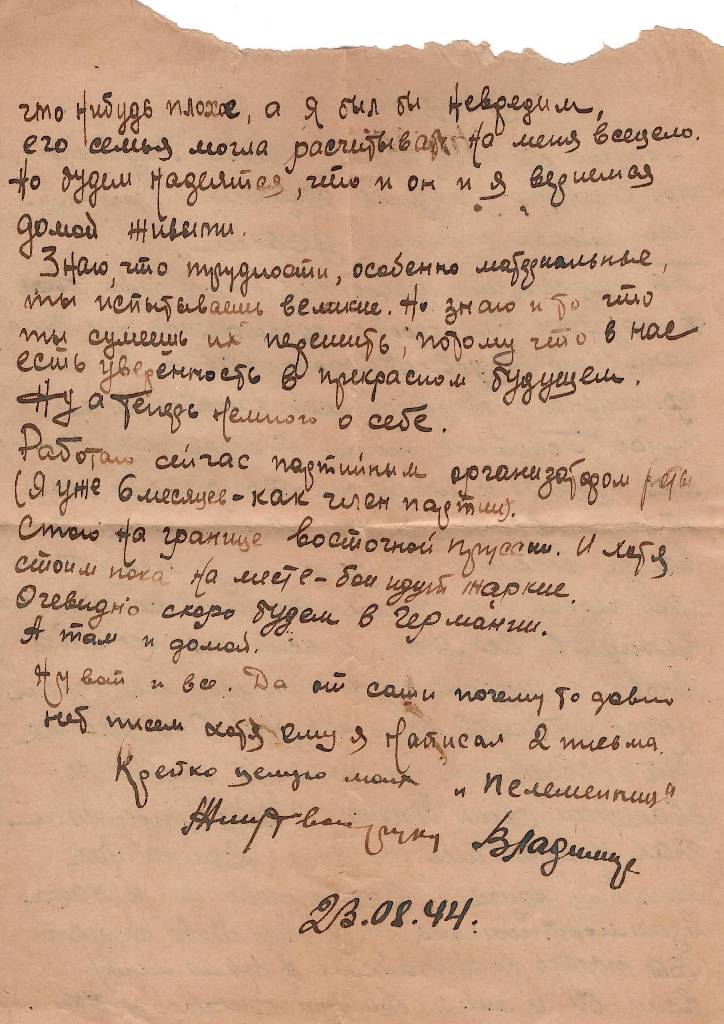 что нибудь плохое, а я был бы невредим,
его семья могла расчитывать на меня всецело.
Но будем надеятся, что и он и я вернемся
домой живыми.
Знаю, что трудности, особенно материальные,
ты испытываешь великие. Но знаю и то что
ты сумеешь их пережить, потому что в нас
есть уверенность в прекрасном будущем.
Ну а теперь немного о себе.
Работаю сейчас партийным организатором роты
(Я уже 6 месяцев - как член партии).
Стою на границе восточной пруссии. И хотя
стоим пока на месте - бои идут жаркие.
Очевидно скоро будем в Германии.
А там и домой.
Ну вот и все. Да от саши почему то давно
нет писем хотя ему я написал 2 письма.
Крепко целую
Жму руку Владимир
23.08.44.